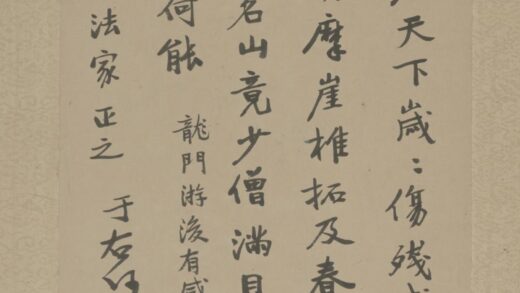 天下歲〻傷殘
摩崖椎拓及春
名山竟少僧滿目
荷能
龍門游後有感
法家正之
于右任